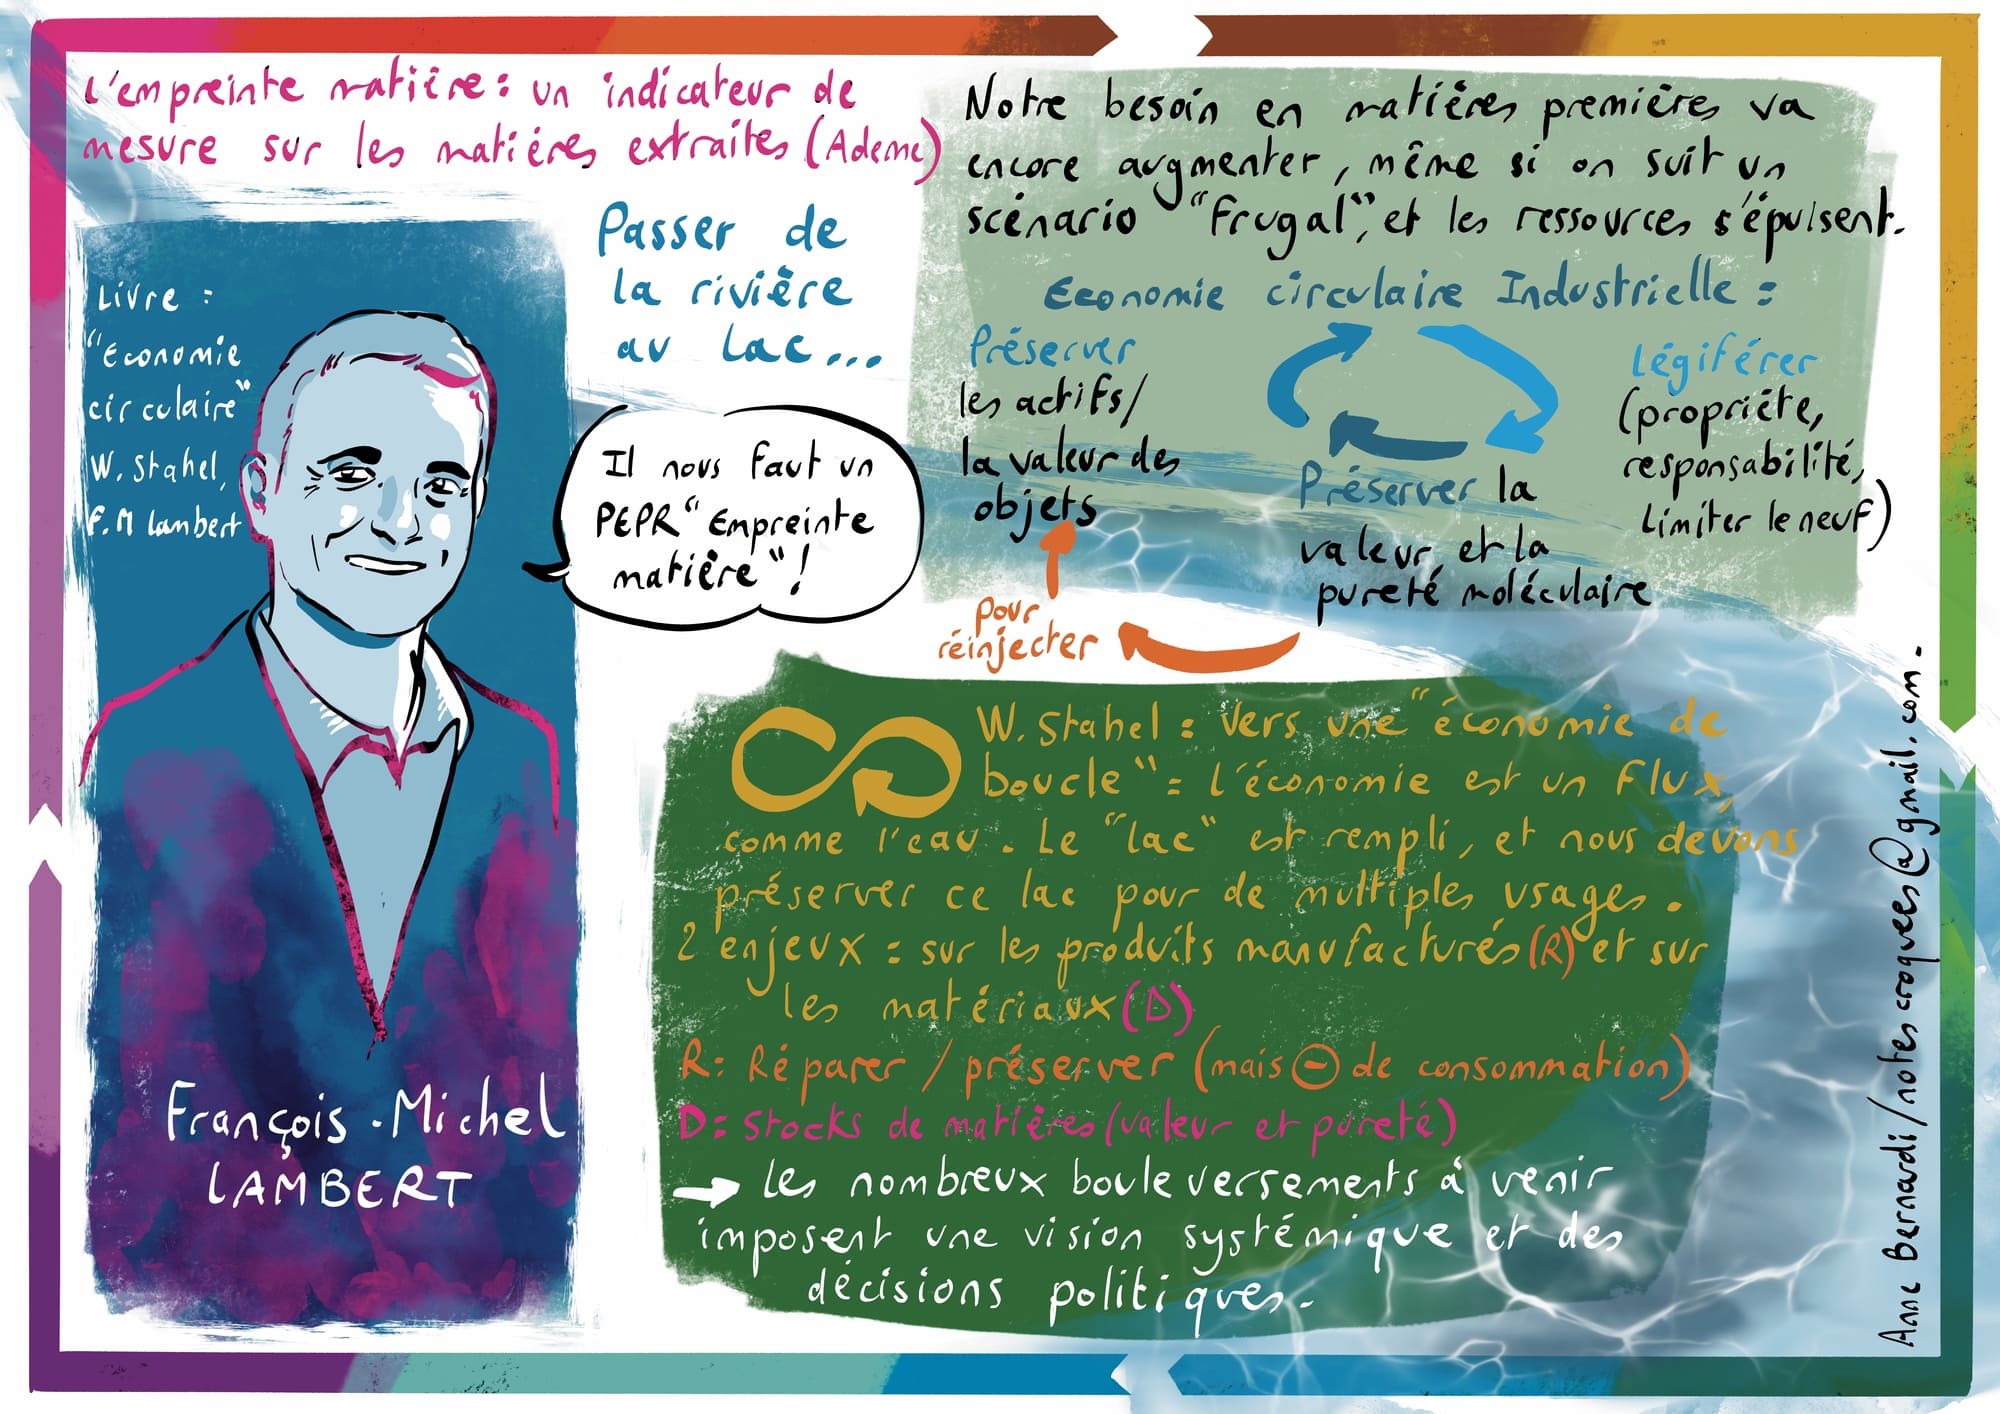 L'empreinte matière : un indicateur de
mesure sur les matières extraites (Ademe)
Livre :
"Economie
circulaire"
W. Stahel,
F.M Lambert
François-Michel
LAMBERT
Passer de
la rivière
au lac...
Il nous faut un
PEPR "Empreinte
matière" !
Notre besoin en matières premières va
encore augmenter, même si on suit un
scénario "Frugal", et les ressources s'épuisent.
Economie circulaire Industrielle :
Préserver
les actifs/
la valeur des
objets
Légiférer
(propriéte,
responsabilité,
limiter le neuf)
Préserver la
valeur et la
pureté moléculaire
pour
réinjecter
W. Stahel : Vers une "économie de
boucle" : l'économie est un flux,
comme l'eau. Le "lac" est rempli, et nous devons
préserver ce lac pour de multiples usages.
2 enjeux : sur les produits manufacturés (R) et sur
les matériaux (D)
R : Réparer / préserver (mais - de consommation)
D : Stocks de matières (valeur et pureté)
→ Les nombreux bouleversements à venir
imposent une vision systémique et des
décisions politiques.
Anne Bernardi/notes croquees@gmail.com.